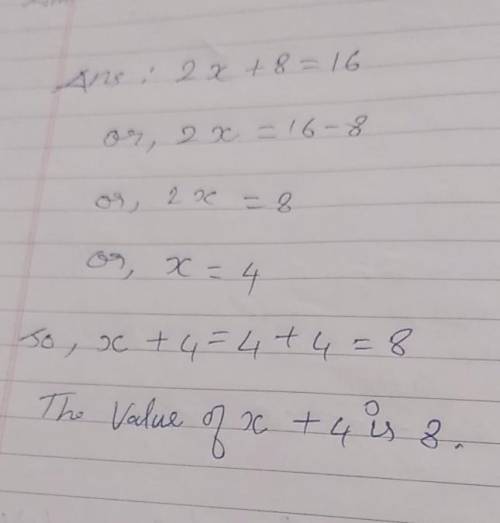 Ans: 2x + 8 = 16
or, 2x = 16 - 8
or, 2x = 8
or, x = 4
So, x + 4 = 4 + 4 = 8
The Value of x + 4 is 8.